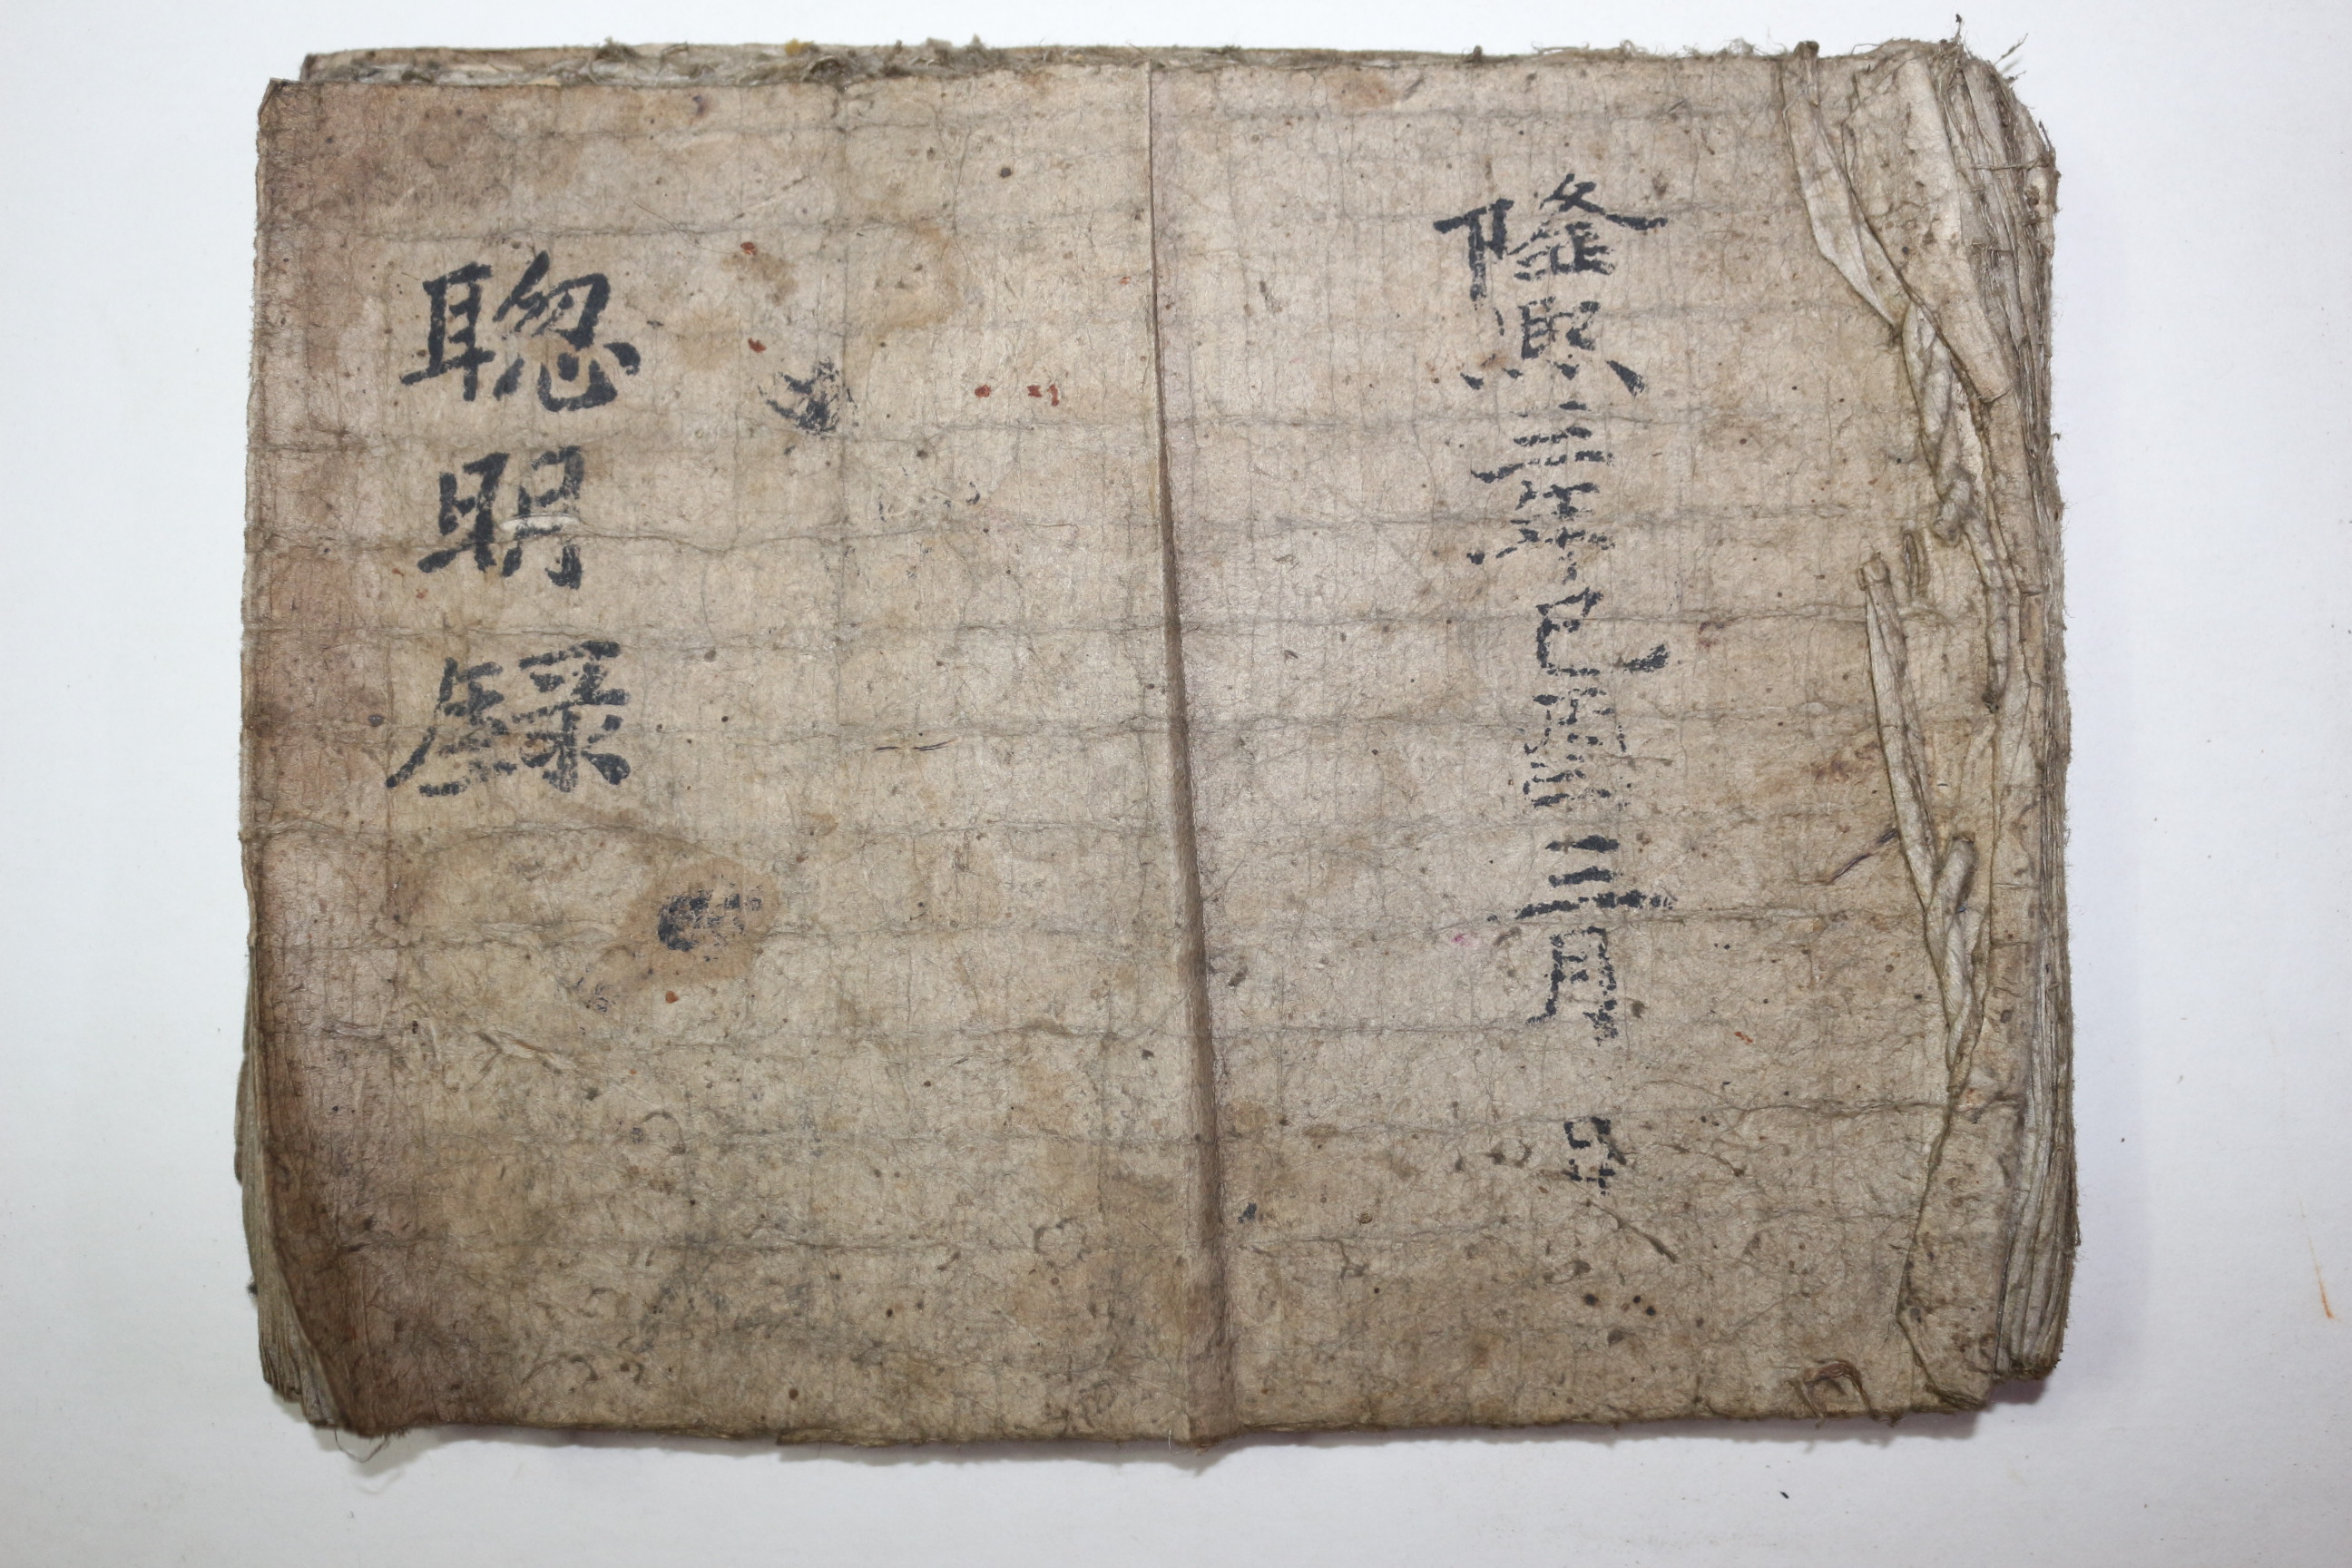 隆熙三年己酉三月 日
聦明錄